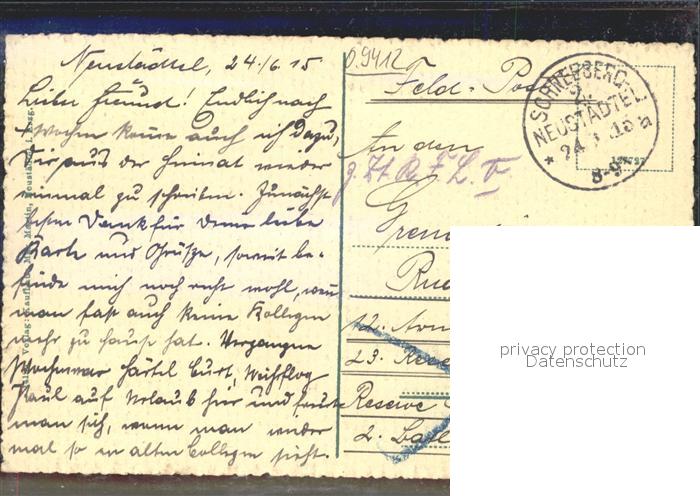 Neustädtel, 24./6. 15
Lieber Freund! Endlich nach
Wochen komme auch ich dazu,
Dir aus der Heimat wieder
einmal zu schreiben. Zunächst
besten Dank für deine liebe
Karte und Grüße, soweit be-
finde mich noch recht wohl, wenn
man fast auch keine Kollegen
mehr zu Hause hat. Vergangene
Woche war Härtel Curt, Weihflog
Paul auf Urlaub hier und freut
man sich, wenn man wieder
mal so in alten Collegen sieht.
0.9412
Feld-Pos
SCHNEEBERG-
NEUSTÄDTEL
24. 15
8-9
a
An den
z. Zt. R. F. L. V
Gren
Ru
12. Arm
23. Rese
Reserve
2. Batl
privacy protection
Datenschutz